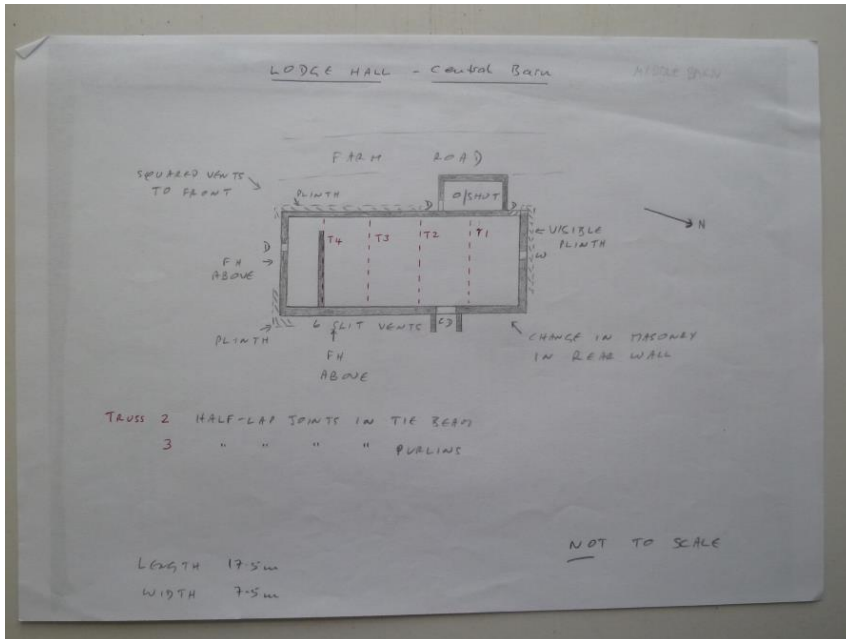 LODGE HALL - Central Barn
MIDDLE BARN
FARM ROAD
SQUARED VENTS
TO FRONT
PLINTH
D
O/SHUT
D
N
T4
T3
T2
T1
VISIBLE
PLINTH
W
D
FH
ABOVE
PLINTH
6 SLIT VENTS
CD
FH
ABOVE
CHANGE IN MASONRY
IN REAR WALL
TRUSS 2 HALF-LAP JOINTS IN TIE BEAM
3 " " " " PURLINS
NOT TO SCALE
LENGTH 17.5m
WIDTH 7.5m